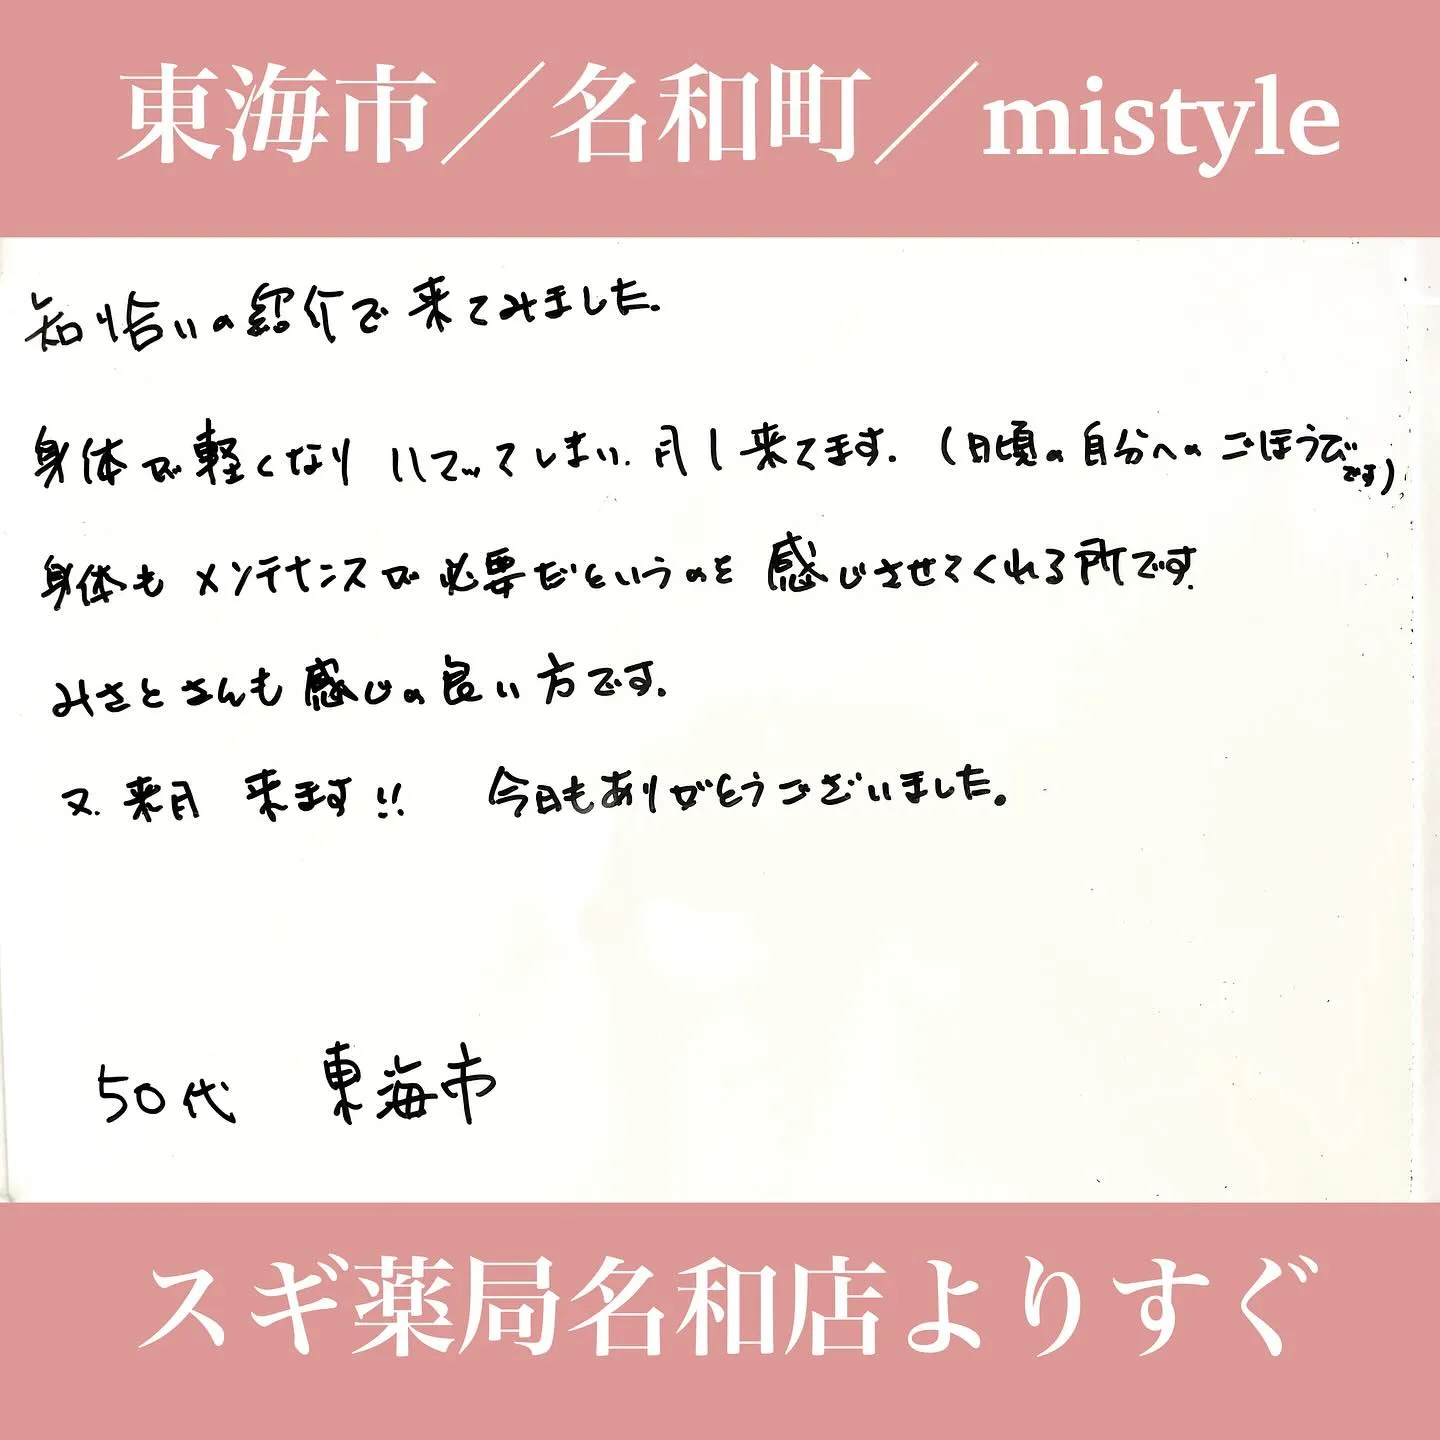 東海市／名和町／mistyle
知り合いの紹介で来てみました.
身体が軽くなり いつってしまい. 月1来てます. (日頃の自分へのごほうびです)
身体もメンテナンスが必要だというのを感じさせてくれる所です.
みさとさんも感じの良い方です.
又. 来月 来ます!! 今日もありがとうございました。
50代 東海市
スギ薬局名和店よりすぐ